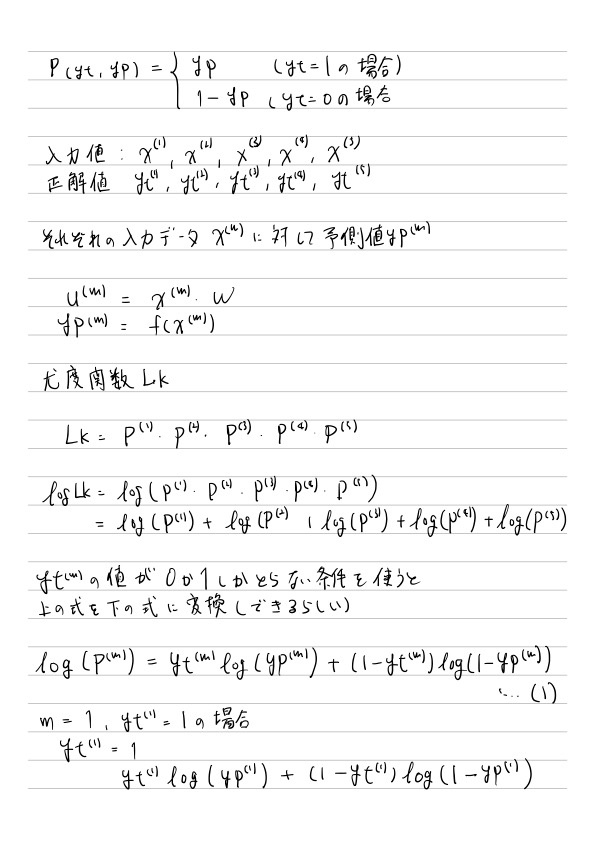 P(yt, yp) = { yp (yt=1の場合)
1-yp (yt=0の場合
入力値: x⁽¹⁾, x⁽²⁾, x⁽³⁾, x⁽⁴⁾, x⁽⁵⁾
正解値 yt⁽¹⁾, yt⁽²⁾, yt⁽³⁾, yt⁽⁴⁾, yt⁽⁵⁾
それぞれの入力データ x⁽ᵐ⁾に対して予測値yp⁽ᵐ⁾
u⁽ᵐ⁾ = x⁽ᵐ⁾・w
yp⁽ᵐ⁾ = f(x⁽ᵐ⁾)
尤度関数 Lk
Lk = P⁽¹⁾・P⁽²⁾・P⁽³⁾・P⁽⁴⁾・P⁽⁵⁾
log Lk = log(P⁽¹⁾・P⁽²⁾・P⁽³⁾・P⁽⁴⁾・P⁽⁵⁾)
= log(P⁽¹⁾) + log(P⁽²⁾ + log(P⁽³⁾) + log(P⁽⁴⁾) + log(P⁽⁵⁾)
yt⁽ᵐ⁾の値が0か1しかとらない条件を使うと
上の式を下の式に変換(できるらしい)
log(P⁽ᵐ⁾) = yt⁽ᵐ⁾log(yp⁽ᵐ⁾) + (1-yt⁽ᵐ⁾)log(1-yp⁽ᵐ⁾)
… (1)
m = 1, yt⁽¹⁾ = 1の場合
yt⁽¹⁾ = 1
yt⁽¹⁾ log(yp⁽¹⁾) + (1-yt⁽¹⁾)log(1-yp⁽¹⁾)